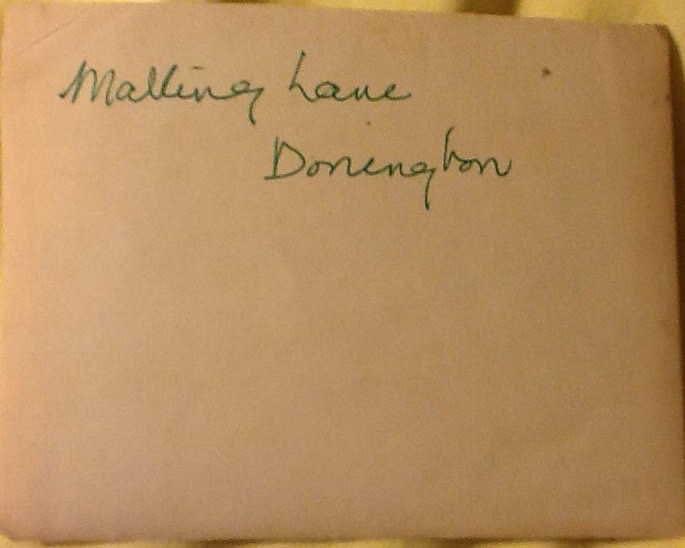 Malting Lane
Donington